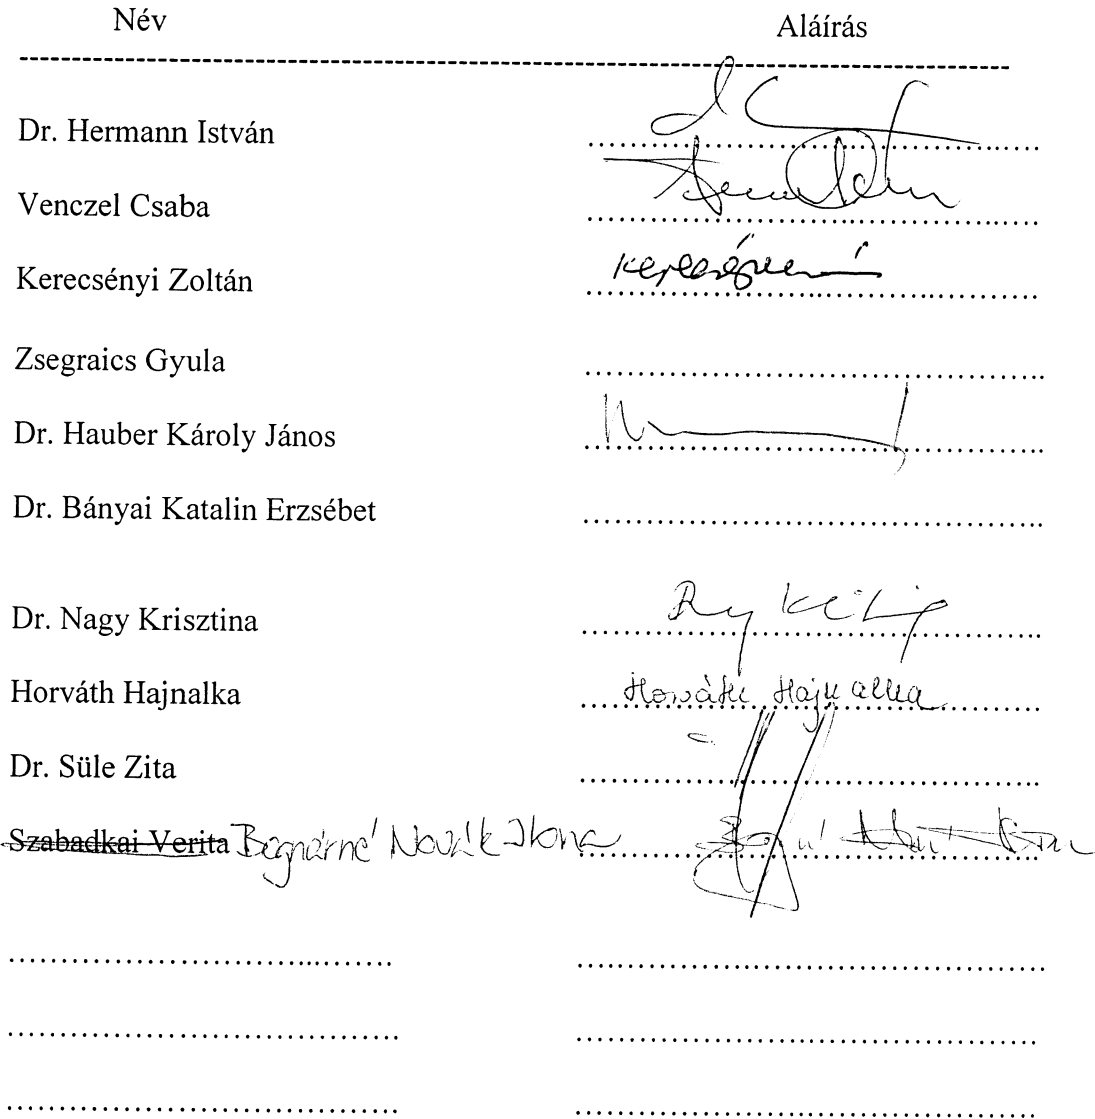 Név Aláírás
Dr. Hermann István
Venczel Csaba
Kerecsényi Zoltán
Zsegraics Gyula
Dr. Hauber Károly János
Dr. Bányai Katalin Erzsébet
Dr. Nagy Krisztina
Horváth Hajnalka Horváth Hajnalka
Dr. Süle Zita
Szabadkai Verita Bognárné Novák Ilona